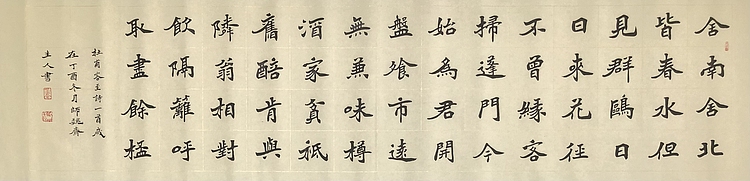 舍南舍北
皆春水但
見群鷗日
日來花徑
不曾緣客
掃逢門今
始為君開
盤飱市遠
無兼味樽
酒家貧祇
舊醅肯與
隣翁相對
飲隔籬呼
取盡餘桮
杜甫客至詩一首歲
在丁酉冬月師魏齋
主人書